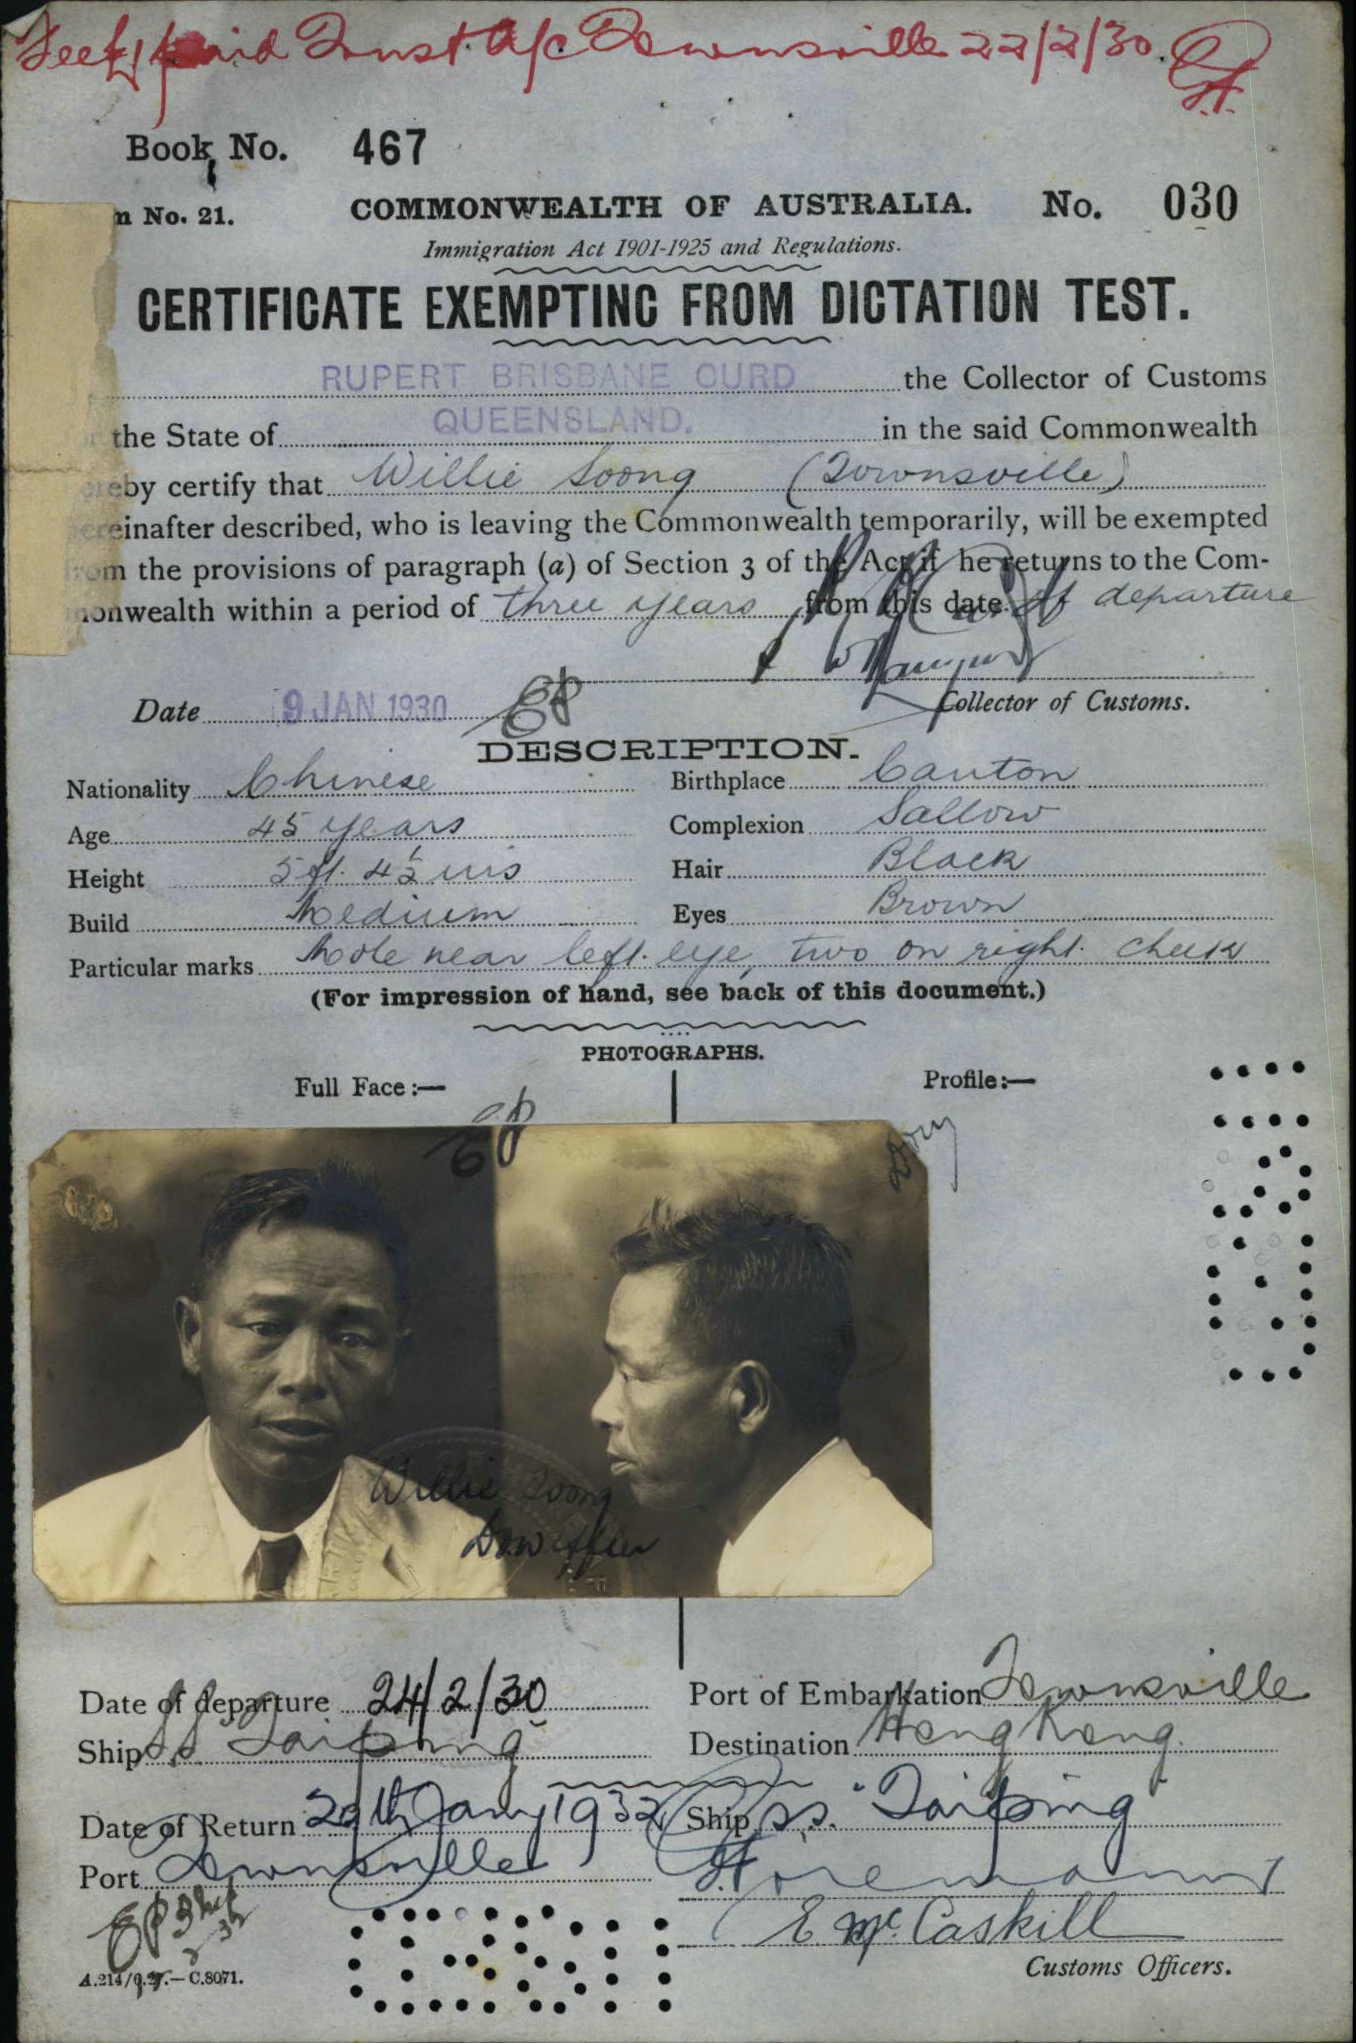 Fee £1 paid Trust A/c Townsville 22/2/30.
Book No. 467
n No. 21.
COMMONWEALTH OF AUSTRALIA. No. 030
Immigration Act 1901-1925 and Regulations.
CERTIFICATE EXEMPTING FROM DICTATION TEST.
RUPERT BRISBANE OURD the Collector of Customs
the State of QUEENSLAND. in the said Commonwealth
ereby certify that Willie Soong (Townsville)
ereinafter described, who is leaving the Commonwealth temporarily, will be exempted
rom the provisions of paragraph (a) of Section 3 of the Act if he returns to the Com-
monwealth within a period of three years from this date of departure
Collector of Customs.
Date 9 JAN 1930
DESCRIPTION.
Nationality Chinese Birthplace Canton
Age 45 years Complexion Sallow
Height 5 ft. 4½ ins Hair Black
Build Medium Eyes Brown
Particular marks Mole near left. eye, two on right. cheek
(For impression of hand, see back of this document.)
PHOTOGRAPHS.
Full Face:— Profile:—
Willie Soong
Date of departure 24/2/30 Port of Embarkation Townsville
Ship SS Taiping Destination Hong Kong.
Date of Return 29th Jany 1932 Ship s.s. "Taiping"
Port Townsville
E McCaskill
Customs Officers.
A.214/9.27.—C.8071.